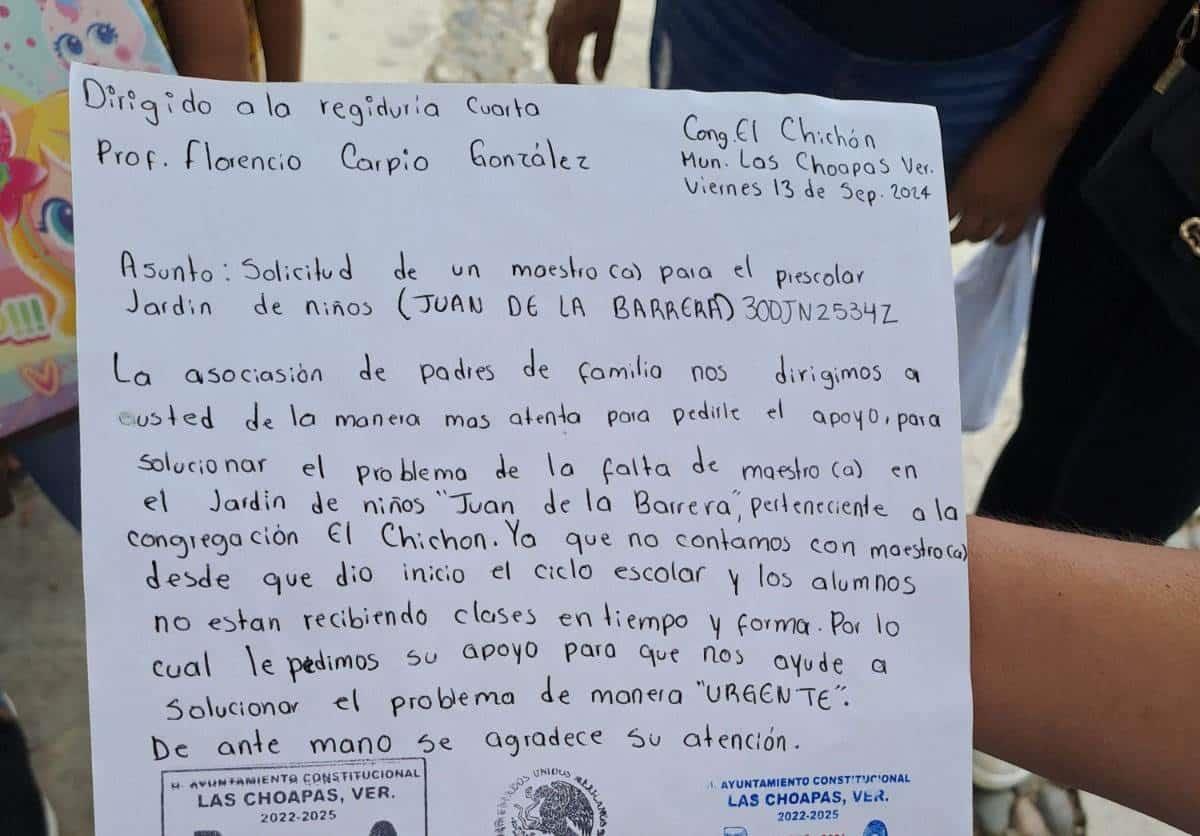 Dirigido a la regiduría Cuarta
Prof. Florencio Carpio González
Cong. El Chichón
Mun. Las Choapas Ver.
Viernes 13 de Sep. 2024
Asunto: Solicitud de un maestro(a) para el prescolar
Jardin de niños (JUAN DE LA BARRERA) 30DJN2534Z
La asociasión de padres de familia nos dirigimos a
usted de la manera mas atenta para pedirle el apoyo, para
solucionar el problema de la falta de maestro(a) en
el Jardin de niños "Juan de la Barrera", perteneciente a la
congregación El Chichon. Ya que no contamos con maestro(a)
desde que dio inicio el ciclo escolar y los alumnos
no estan recibiendo clases en tiempo y forma. Por lo
cual le pedimos su apoyo para que nos ayude a
solucionar el problema de manera "URGENTE".
De ante mano se agradece su atención.
H. AYUNTAMIENTO CONSTITUCIONAL
LAS CHOAPAS, VER.
2022-2025
UNIDOS
AYUNTAMIENTO CONSTITUCIONAL
LAS CHOAPAS, VER.
2022-2025